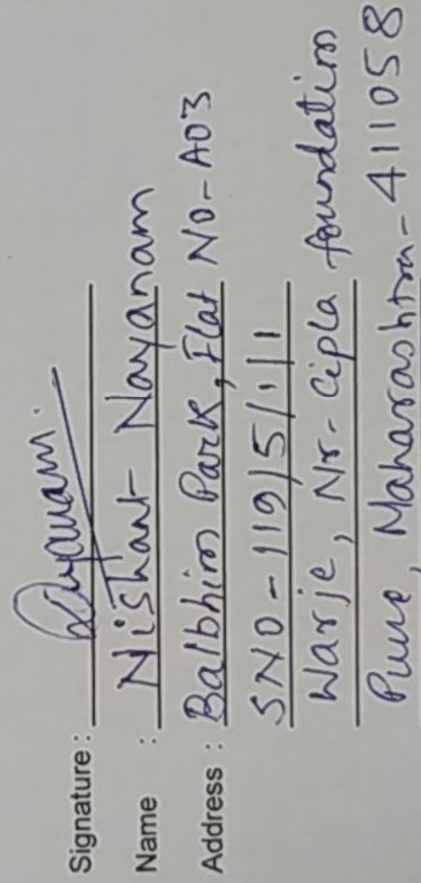 Signature : Nayanam.
Name : Nishant Nayanam
Address : Balbhim Park, Flat NO-A03
SNO-119/5/1/1
Warje, Nr- Cipla foundation
Pune, Maharashtra- 411058